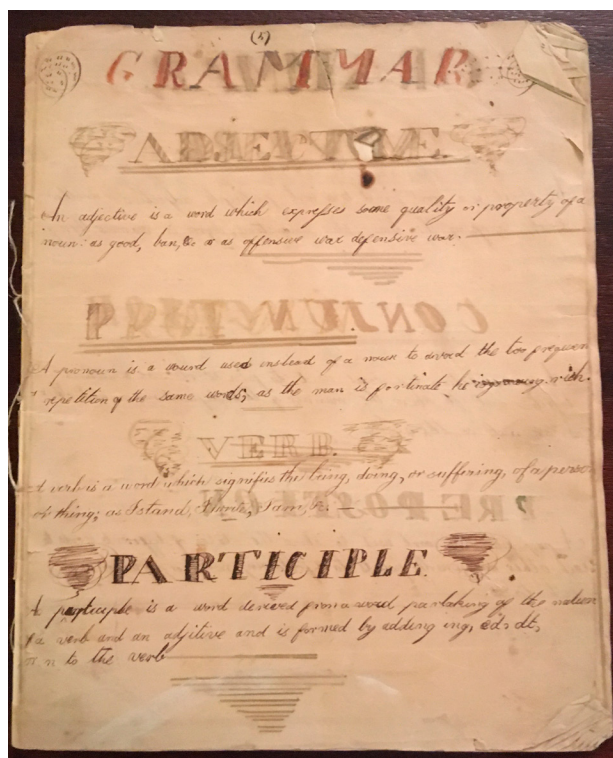 (5)
GRAMMAR
ADJECTIVE.
An adjective is a word which expresses some quality or property of a
noun: as good, ban, &c or as offensive war defensive war.
A pronoun is a wourd used enstead of a noun to avoid the too frequen
repetition of the same words; as the man is fortunate he
VERB.
A verb is a word which signifies the being, doing, or suffering, of a person
or thing; as I stand, I am,
PARTICIPLE
A participle is a word derived from a word partaking of the nature
a verb and an adjitive and is formed by edding ing, ed, dt,
or n to the verb